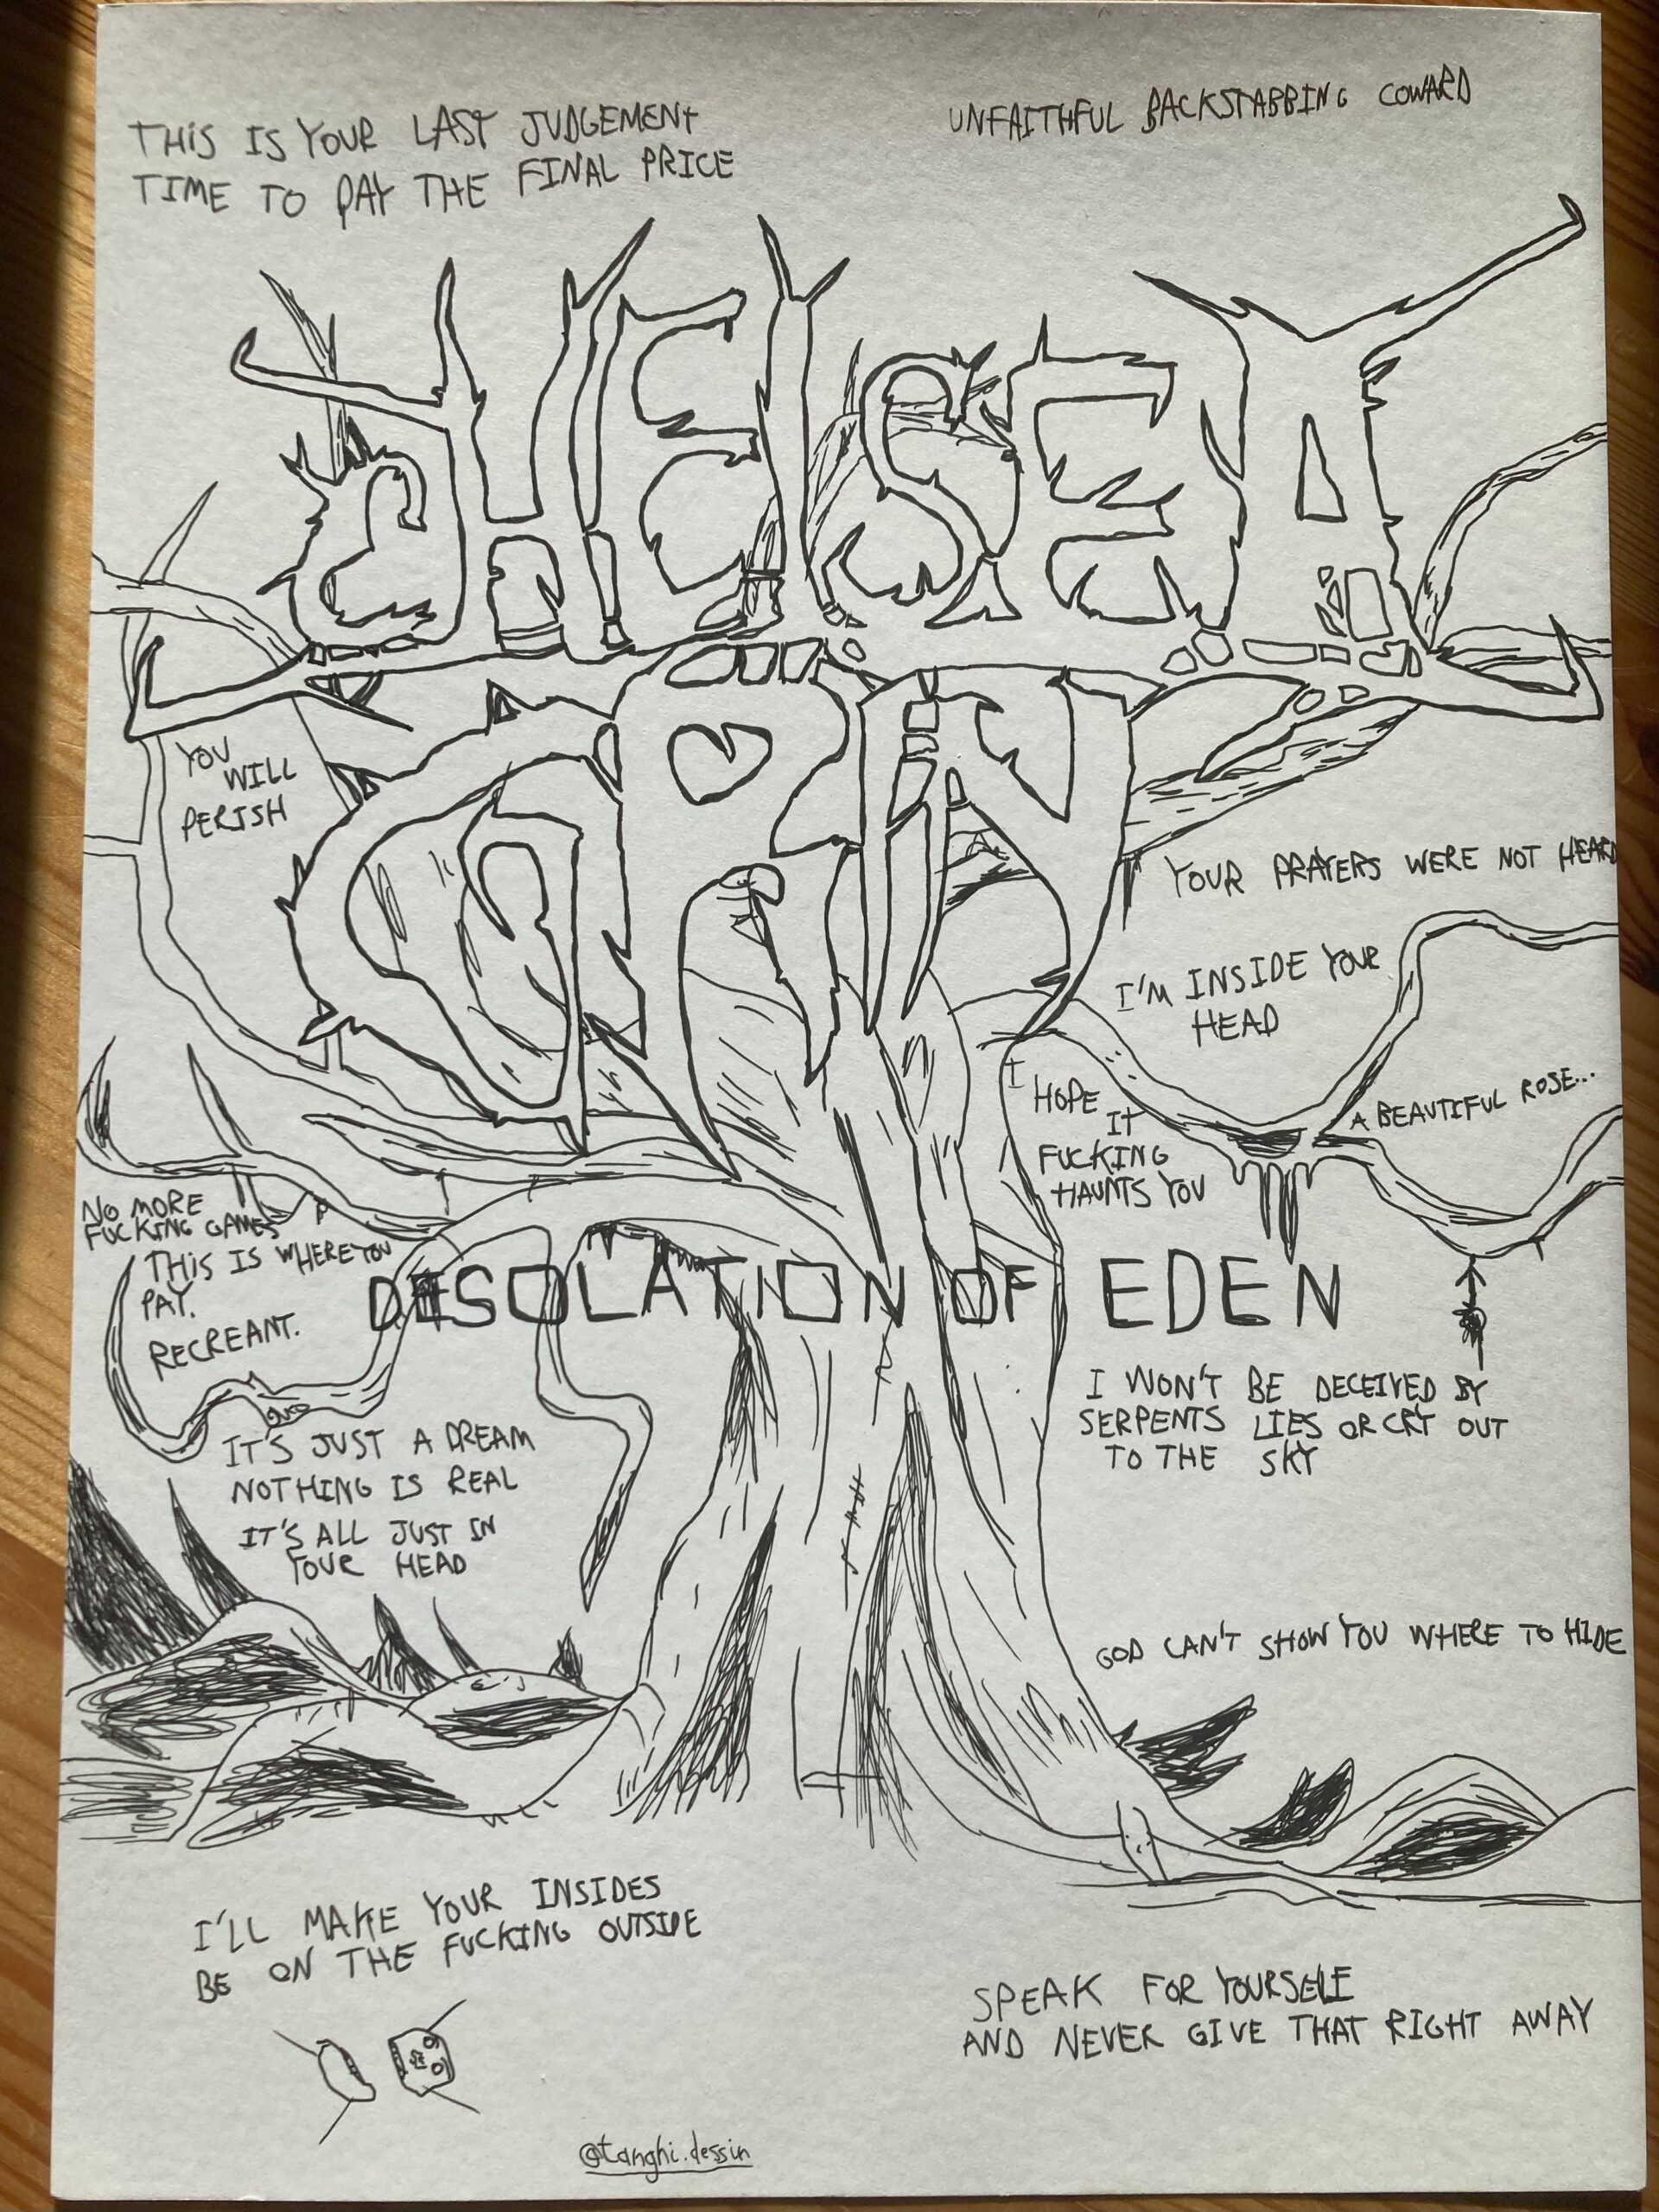 THIS IS YOUR LAST JUDGEMENT
TIME TO PAY THE FINAL PRICE
UNFAITHFUL BACKSTABBING COWARD
CHELSEA
GRIN
YOU
WILL
PERISH
YOUR PRAYERS WERE NOT HEARD
I'M INSIDE YOUR
HEAD
I
HOPE
IT
FUCKING
HAUNTS YOU
A BEAUTIFUL ROSE...
NO MORE
FUCKING GAMES
THIS IS WHERE YOU
PAY.
RECREANT.
DESOLATION OF EDEN
I WON'T BE DECEIVED BY
SERPENTS LIES OR CRY OUT
TO THE SKY
IT'S JUST A DREAM
NOTHING IS REAL
IT'S ALL JUST IN
YOUR HEAD
GOD CAN'T SHOW YOU WHERE TO HIDE
I'LL MAKE YOUR INSIDES
BE ON THE FUCKING OUTSIDE
SPEAK FOR YOURSELF
AND NEVER GIVE THAT RIGHT AWAY
@tanghi.dessin